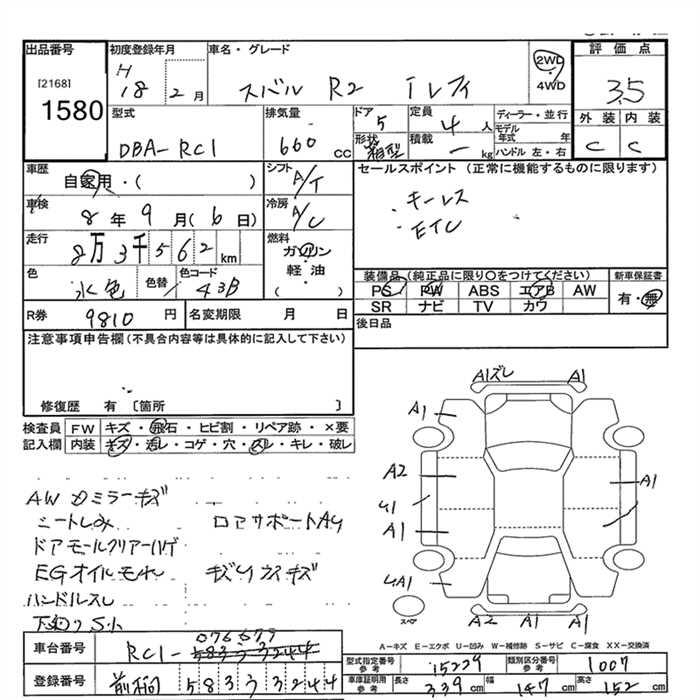 出品番号 初度登録年月 車名・グレード
[2168] 1580
H 18 2月
スバル R2
2WD・4WD
評価点
3.5
外装 内装
C C
型式 DBA-RC1
排気量 660 cc
ドア 5
形状 箱型
定員 4人
積載 - kg
ディーラー・並行
モデル年式 年
ハンドル 左・右
車歴 自家用・( )
シフト A/T
セールスポイント (正常に機能するものに限ります)
・キーレス
・ETC
車検 8年 9月 (6日)
冷房 A/C
走行 8万3千562km
燃料 ガソリン
軽油
( )
色 水色 色替 色コード 43B
装備品(純正品に限り〇をつけてください) 新車保証書
PS PW ABS エアB AW 有・無
SR ナビ TV カワ
R券 9810円 名変期限 月 日
後日品
注意事項申告欄(不具合内容等は具体的に記入して下さい)
修復歴 有 〔箇所 〕
検査員 FW キズ・飛石・ヒビ割・リペア跡・×要
記入欄 内装 キズ・汚レ・コゲ・穴・スレ・キレ・破レ
AW ミラーキズ
シートしみ ロアサポートA4
ドアモールクリアーハゲ
EGオイルモレ
ハンドルスレ
A1ズレ A1
A1
A2 A1
A1
A2 A1 A1
スペア
A-キズ E-エクボ U-凹み W-補修跡 S-サビ C-腐食 XX-交換済
車台番号 RC1-076677
登録番号 前橋 583 3244
型式指定番号 参考 15229 類別区分番号 参考 1007
車庫証明用 参考 長さ 339cm 幅 147cm 高さ 152cm